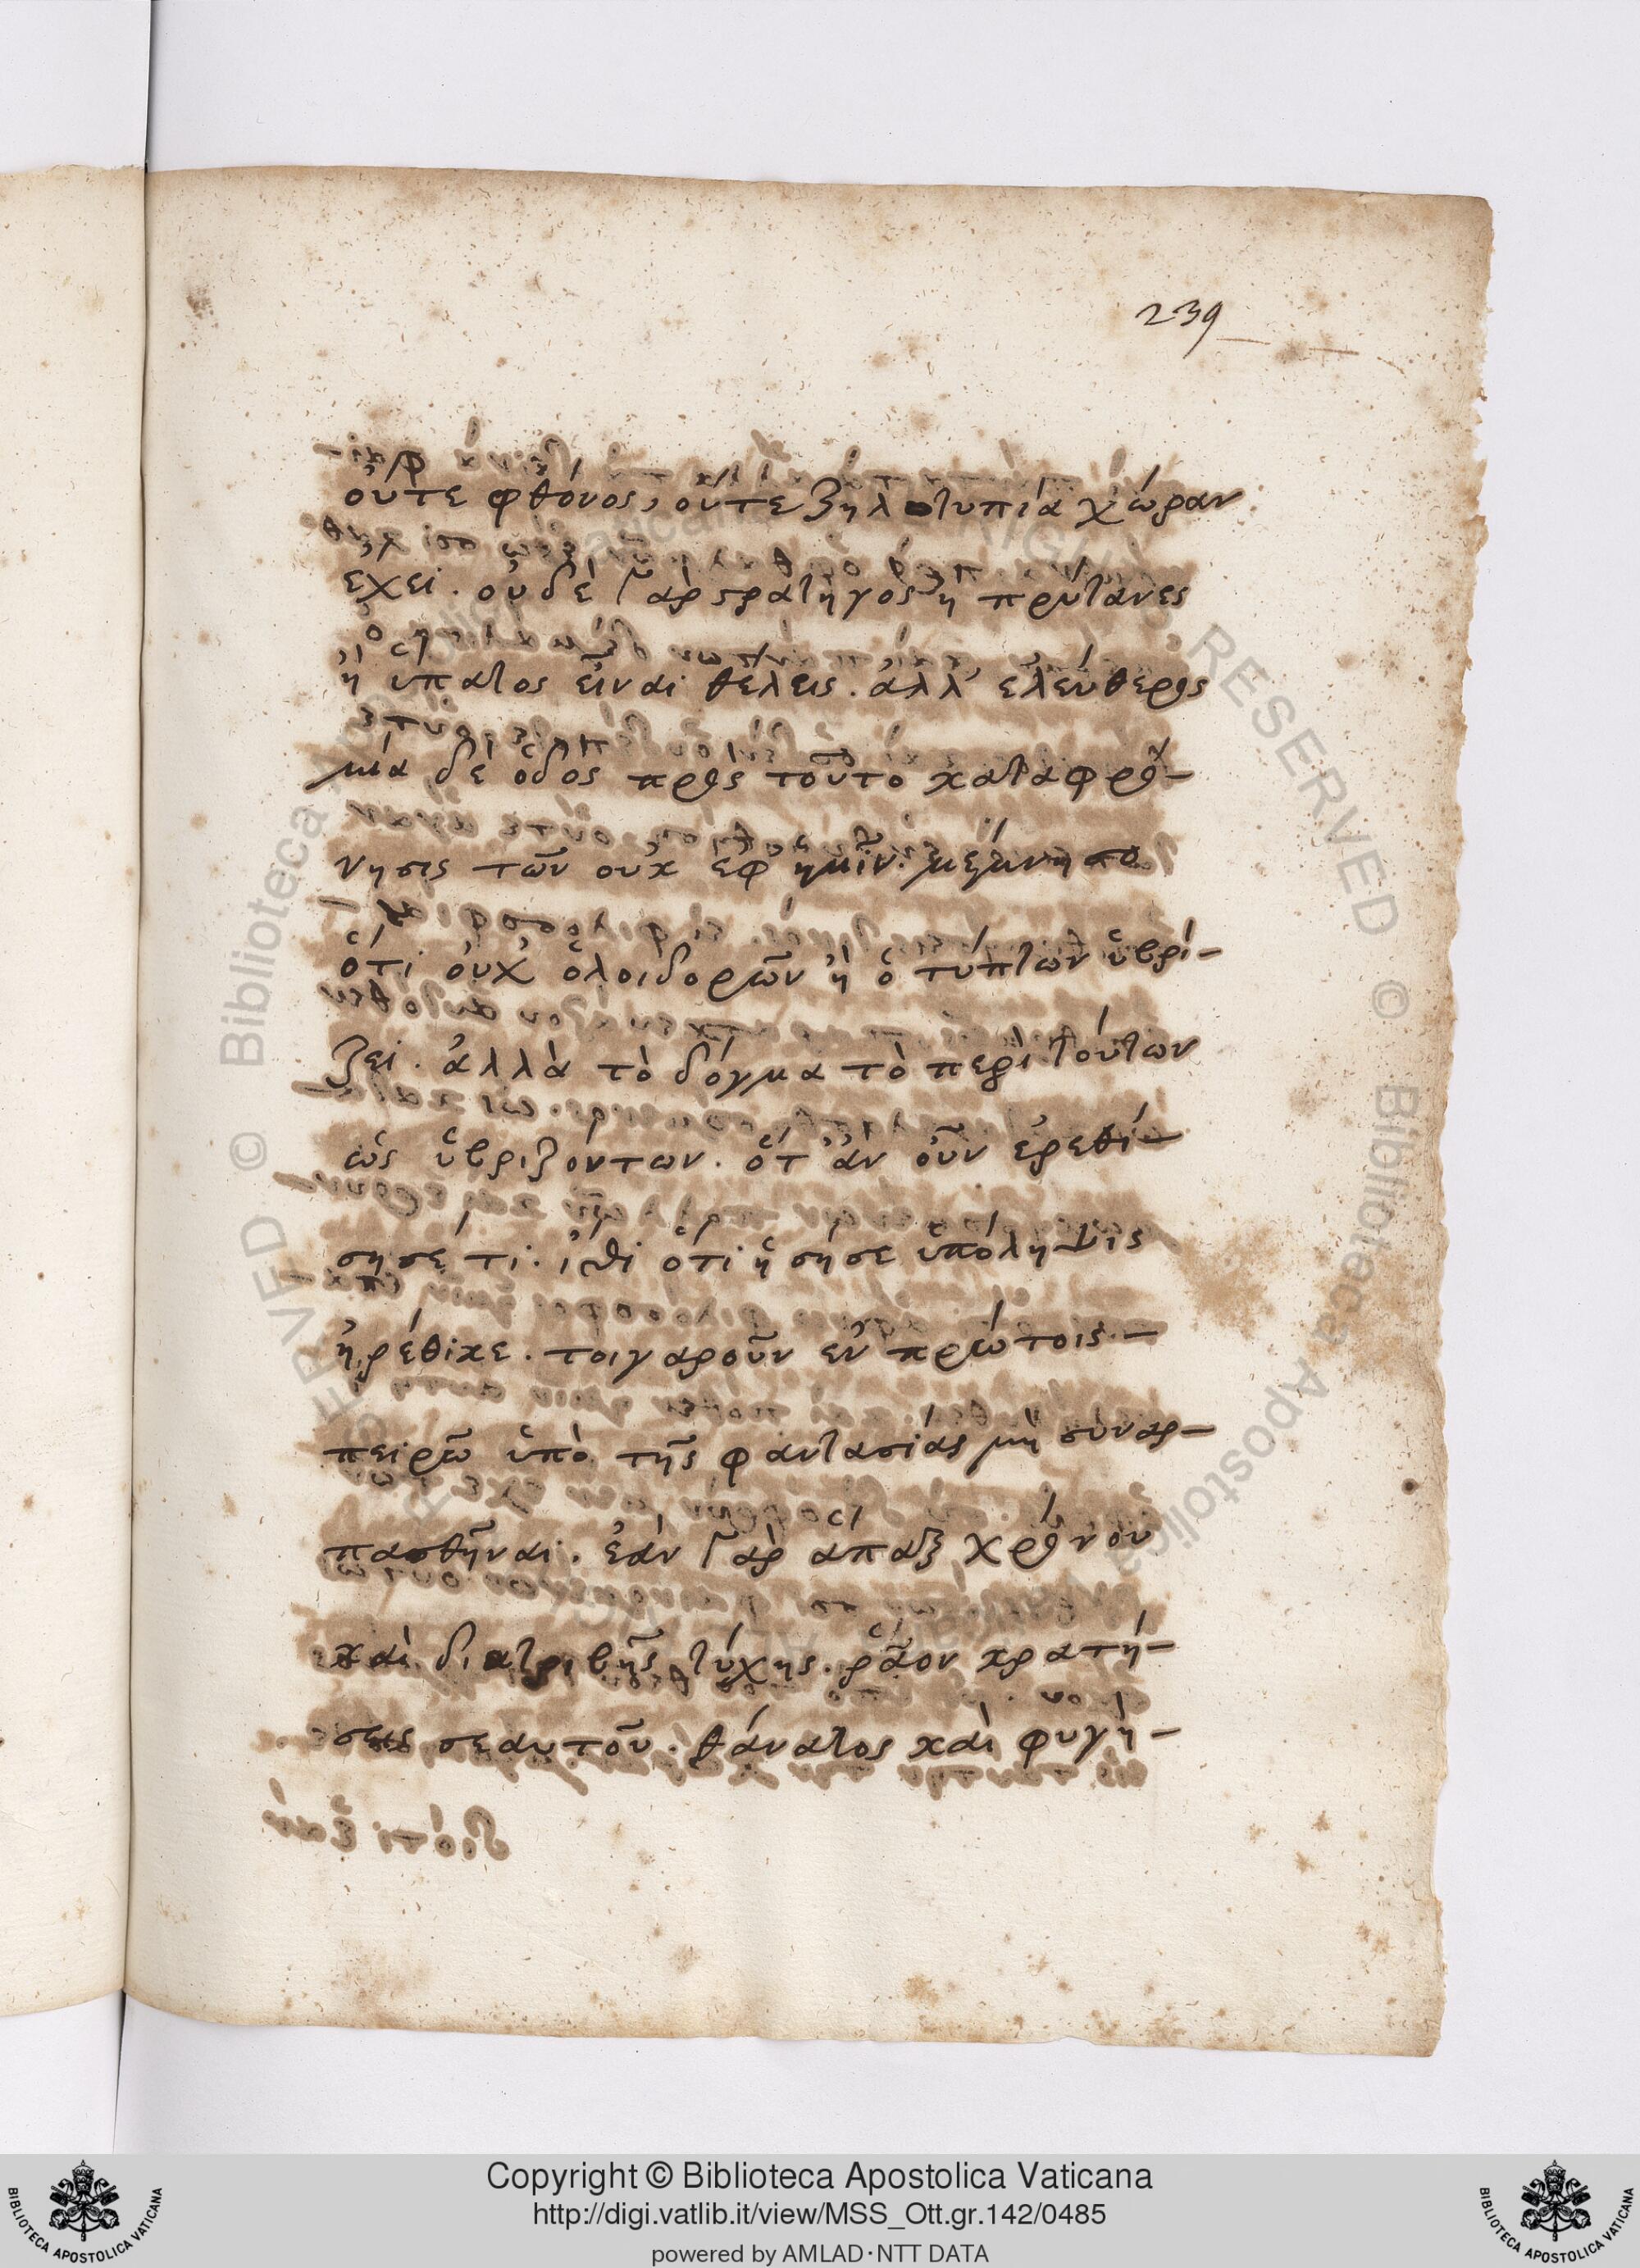 239
οὔτε φθόνος, οὔτε ζηλοτυπία χώραν
ἔχει. οὐδὲ γὰρ στρατηγὸς ἢ πρύτανες
ἢ ὕπατος εἶναι θέλεις. ἀλλ' ἐλεύθερος
μία δὲ ὁδὸς πρὸς τοῦτο καταφρό-
νησις τῶν οὐκ ἐφ ἡμῖν. μέμνησο
ὅτι οὐχ ὁλοιδορῶν ἢ ὁ τύπτων ὑβρί-
ζει. ἀλλὰ τὸ δόγμα τὸ περὶ τούτων
ὡς ὑβριζόντων. ὅτ' ἂν οὖν ἐρεθί-
σησέ τι. ἴσθι ὅτι ἡ σήσε ὑπόληψις
ἠρέθικε. τοιγαροῦν ἐν πρώτοις-
πειρῶ ὑπὸ τῆς φαντασίας μὴ συναρ-
πασθῆναι. ἐὰν γὰρ ἅπαξ χρόνου
καὶ διατριβῆς τύχης. ῥᾷον κρατή-
σεις σεαυτοῦ. θάνατος καὶ φυγὴ-
Copyright © Biblioteca Apostolica Vaticana
http://digi.vatlib.it/view/MSS_Ott.gr.142/0485
powered by AMLAD·NTT DATA
BIBLIOTECA APOSTOLICA VATICANA
BIBLIOTECA APOSTOLICA VATICANA